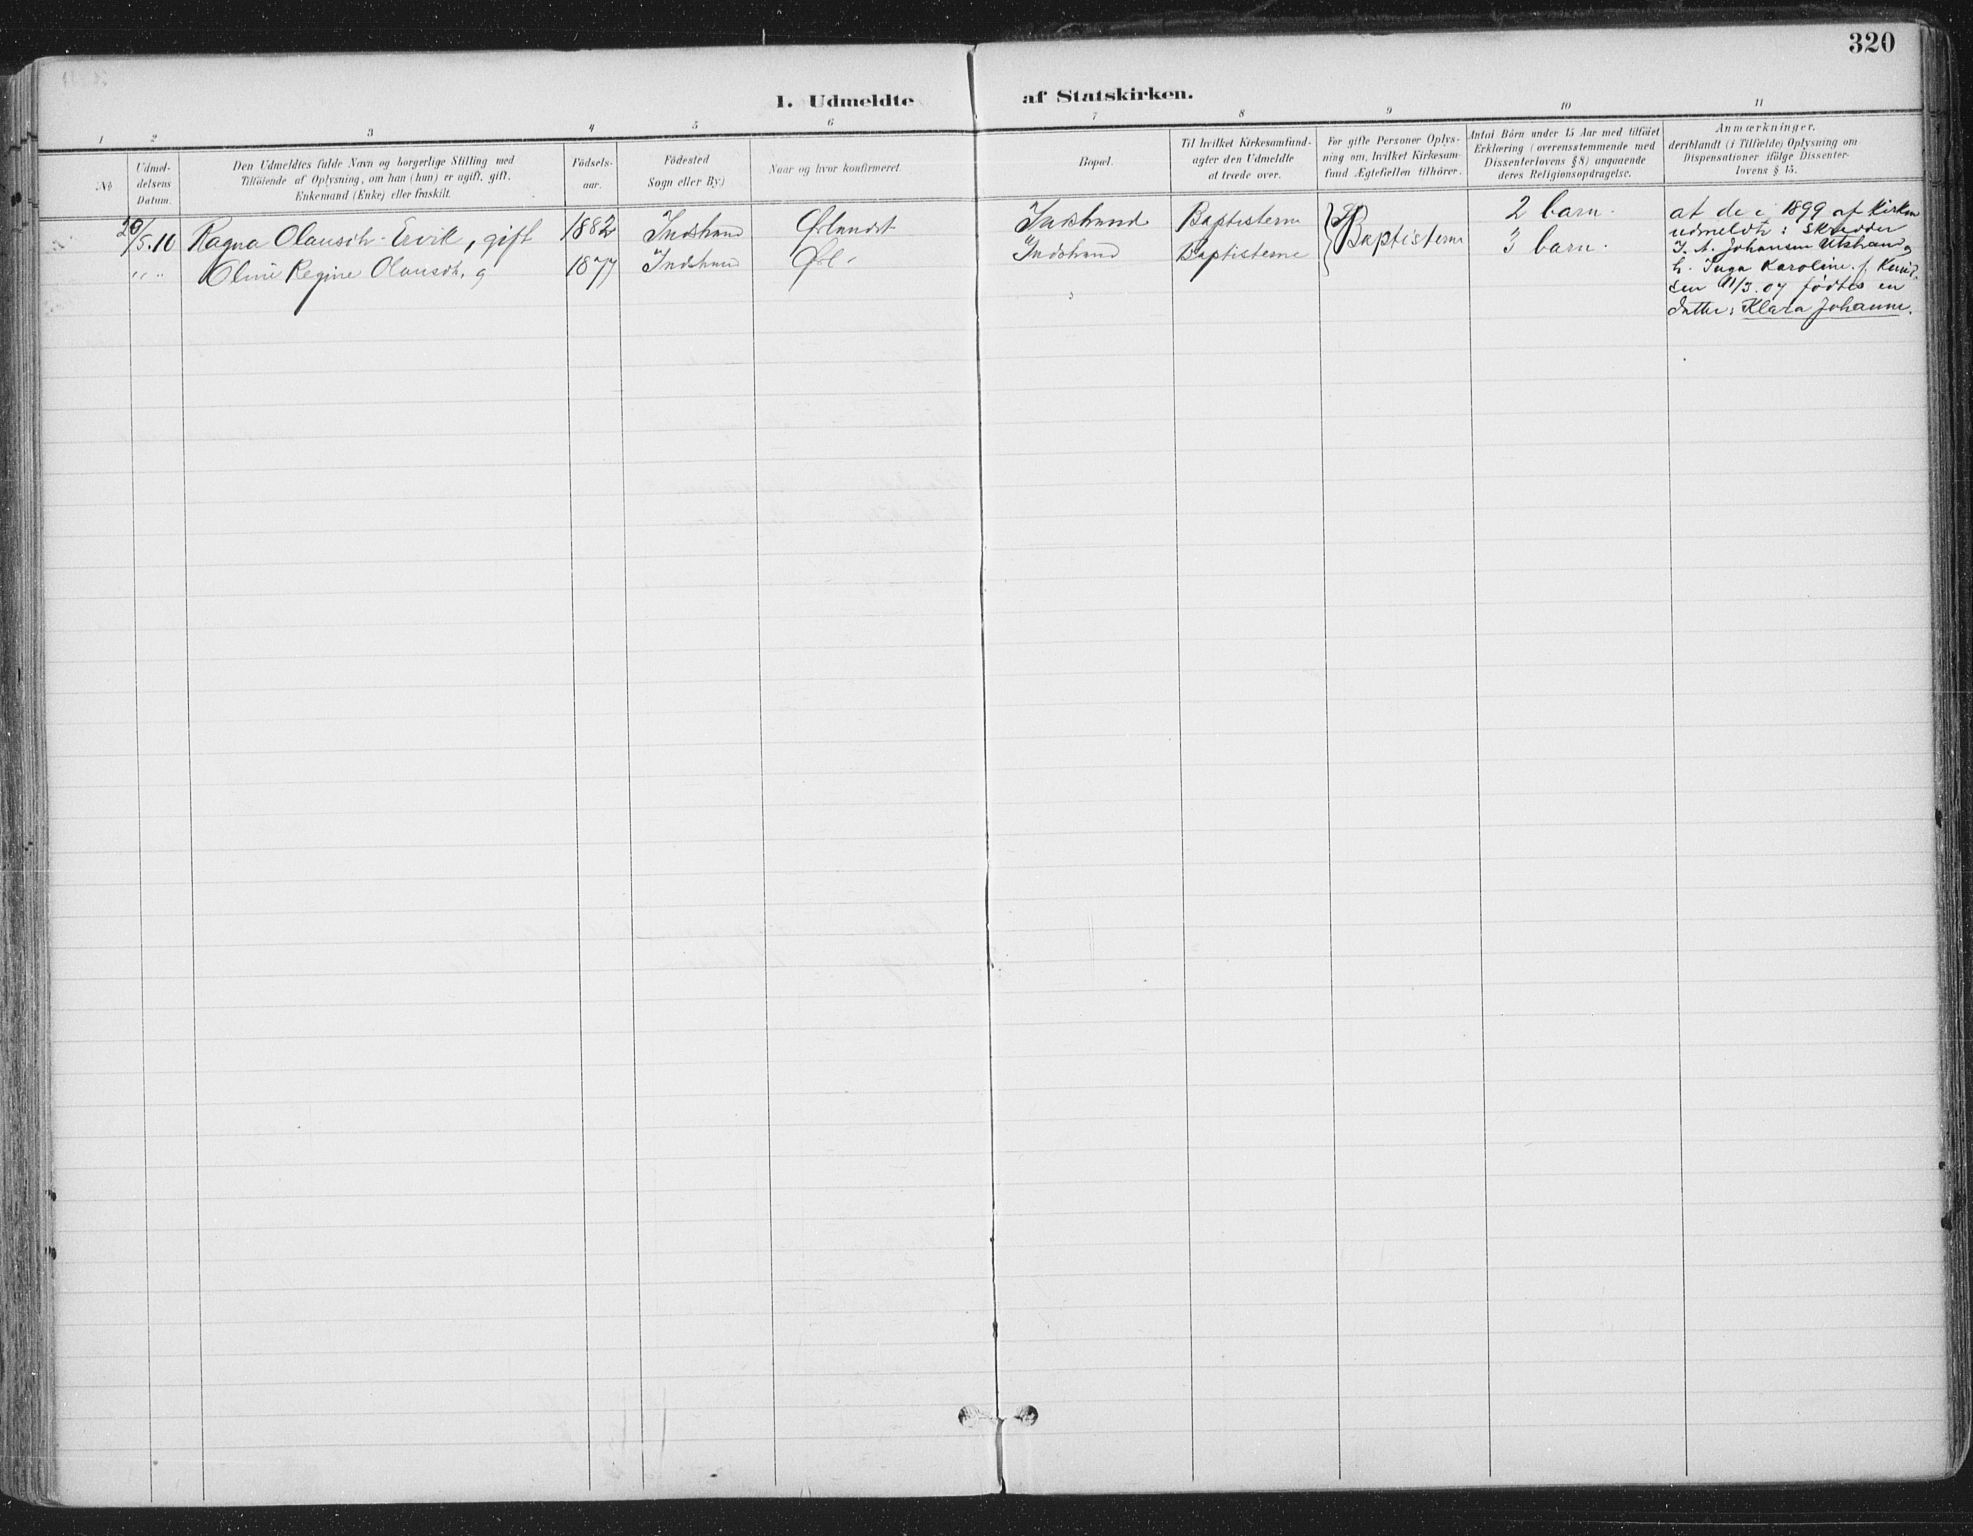 320
1. Udmeldte af Statskirken.
1 2 3 4 5 6 7 8 9 10 11
No
Udmel-
delsens
Datum.
Den Udmeldtes fulde Navn og borgerlige Stilling med
Tilföiende af Oplysning, om han (hun) er ugift, gift,
Enkemand (Enke) eller fraskilt.
Födsels-
aar.
Födested
Sogn eller By.)
Naar og hvor konfirmeret.
Bopæl.
Til hvilket Kirkesamfund-
agter den Udmeldte
at træde over.
For gifte Personer Oplys-
ning om, hvilket Kirkesam-
fund Ægtefællen tilhörer.
Antal Börn under 15 Aar med tilföiet
Erklæring (overensstemmende med
Dissenterlovens § 8) angaaende
deres Religionsopdragelse.
Anmærkninger.
deriblandt (i Tilfælde) Oplysning om
Dispensationer ifölge Dissenter-
lovens § 15.
20/5.10 Ragna Olausdtr. Ervik, gift 1882 Indstrand Ørlandet Indstrand Baptisterne Baptisterne 2 barn.
" " Oline Regine Olausdtr, g 1877 Indstrand Ørl. Indstrand Baptisterne 3 barn.
at de i 1899 af Kirken
udmeldte: Skredder
J. A. Johansen Utstrand og
h. Inga Karoline f. Knud-
sen 11/3.07 fødtes en
datter: Klara Johanne.